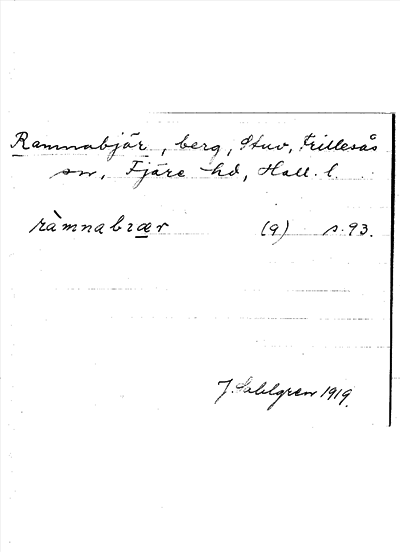 Ramnabjär, berg, Stuv, Frillesås
sn, Fjäre hd, Hall. l.
ràmnabɹær (a) s. 93.
J. Sahlgren 1919.